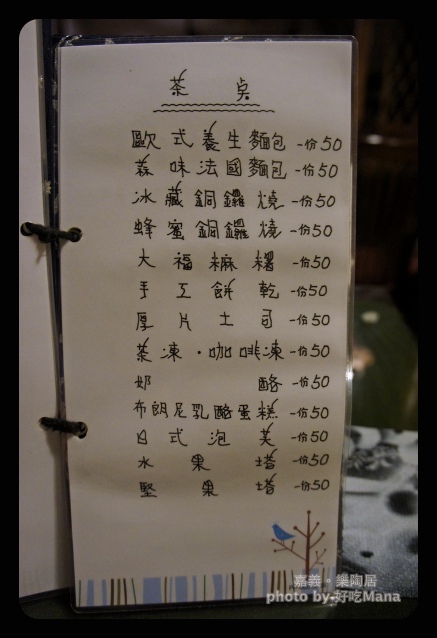 茶點
歐式養生麵包 一份50
蒜味法國麵包 一份50
冰藏銅鑼燒 一份50
蜂蜜銅鑼燒 一份50
大福麻糬 一份50
手工餅乾 一份50
厚片土司 一份50
茶凍·咖啡凍 一份50
奶酪 一份50
布朗尼乳酪蛋糕 一份50
日式泡芙 一份50
水果塔 一份50
堅果塔 一份50
嘉義。樂陶居
photo by 好吃Mana